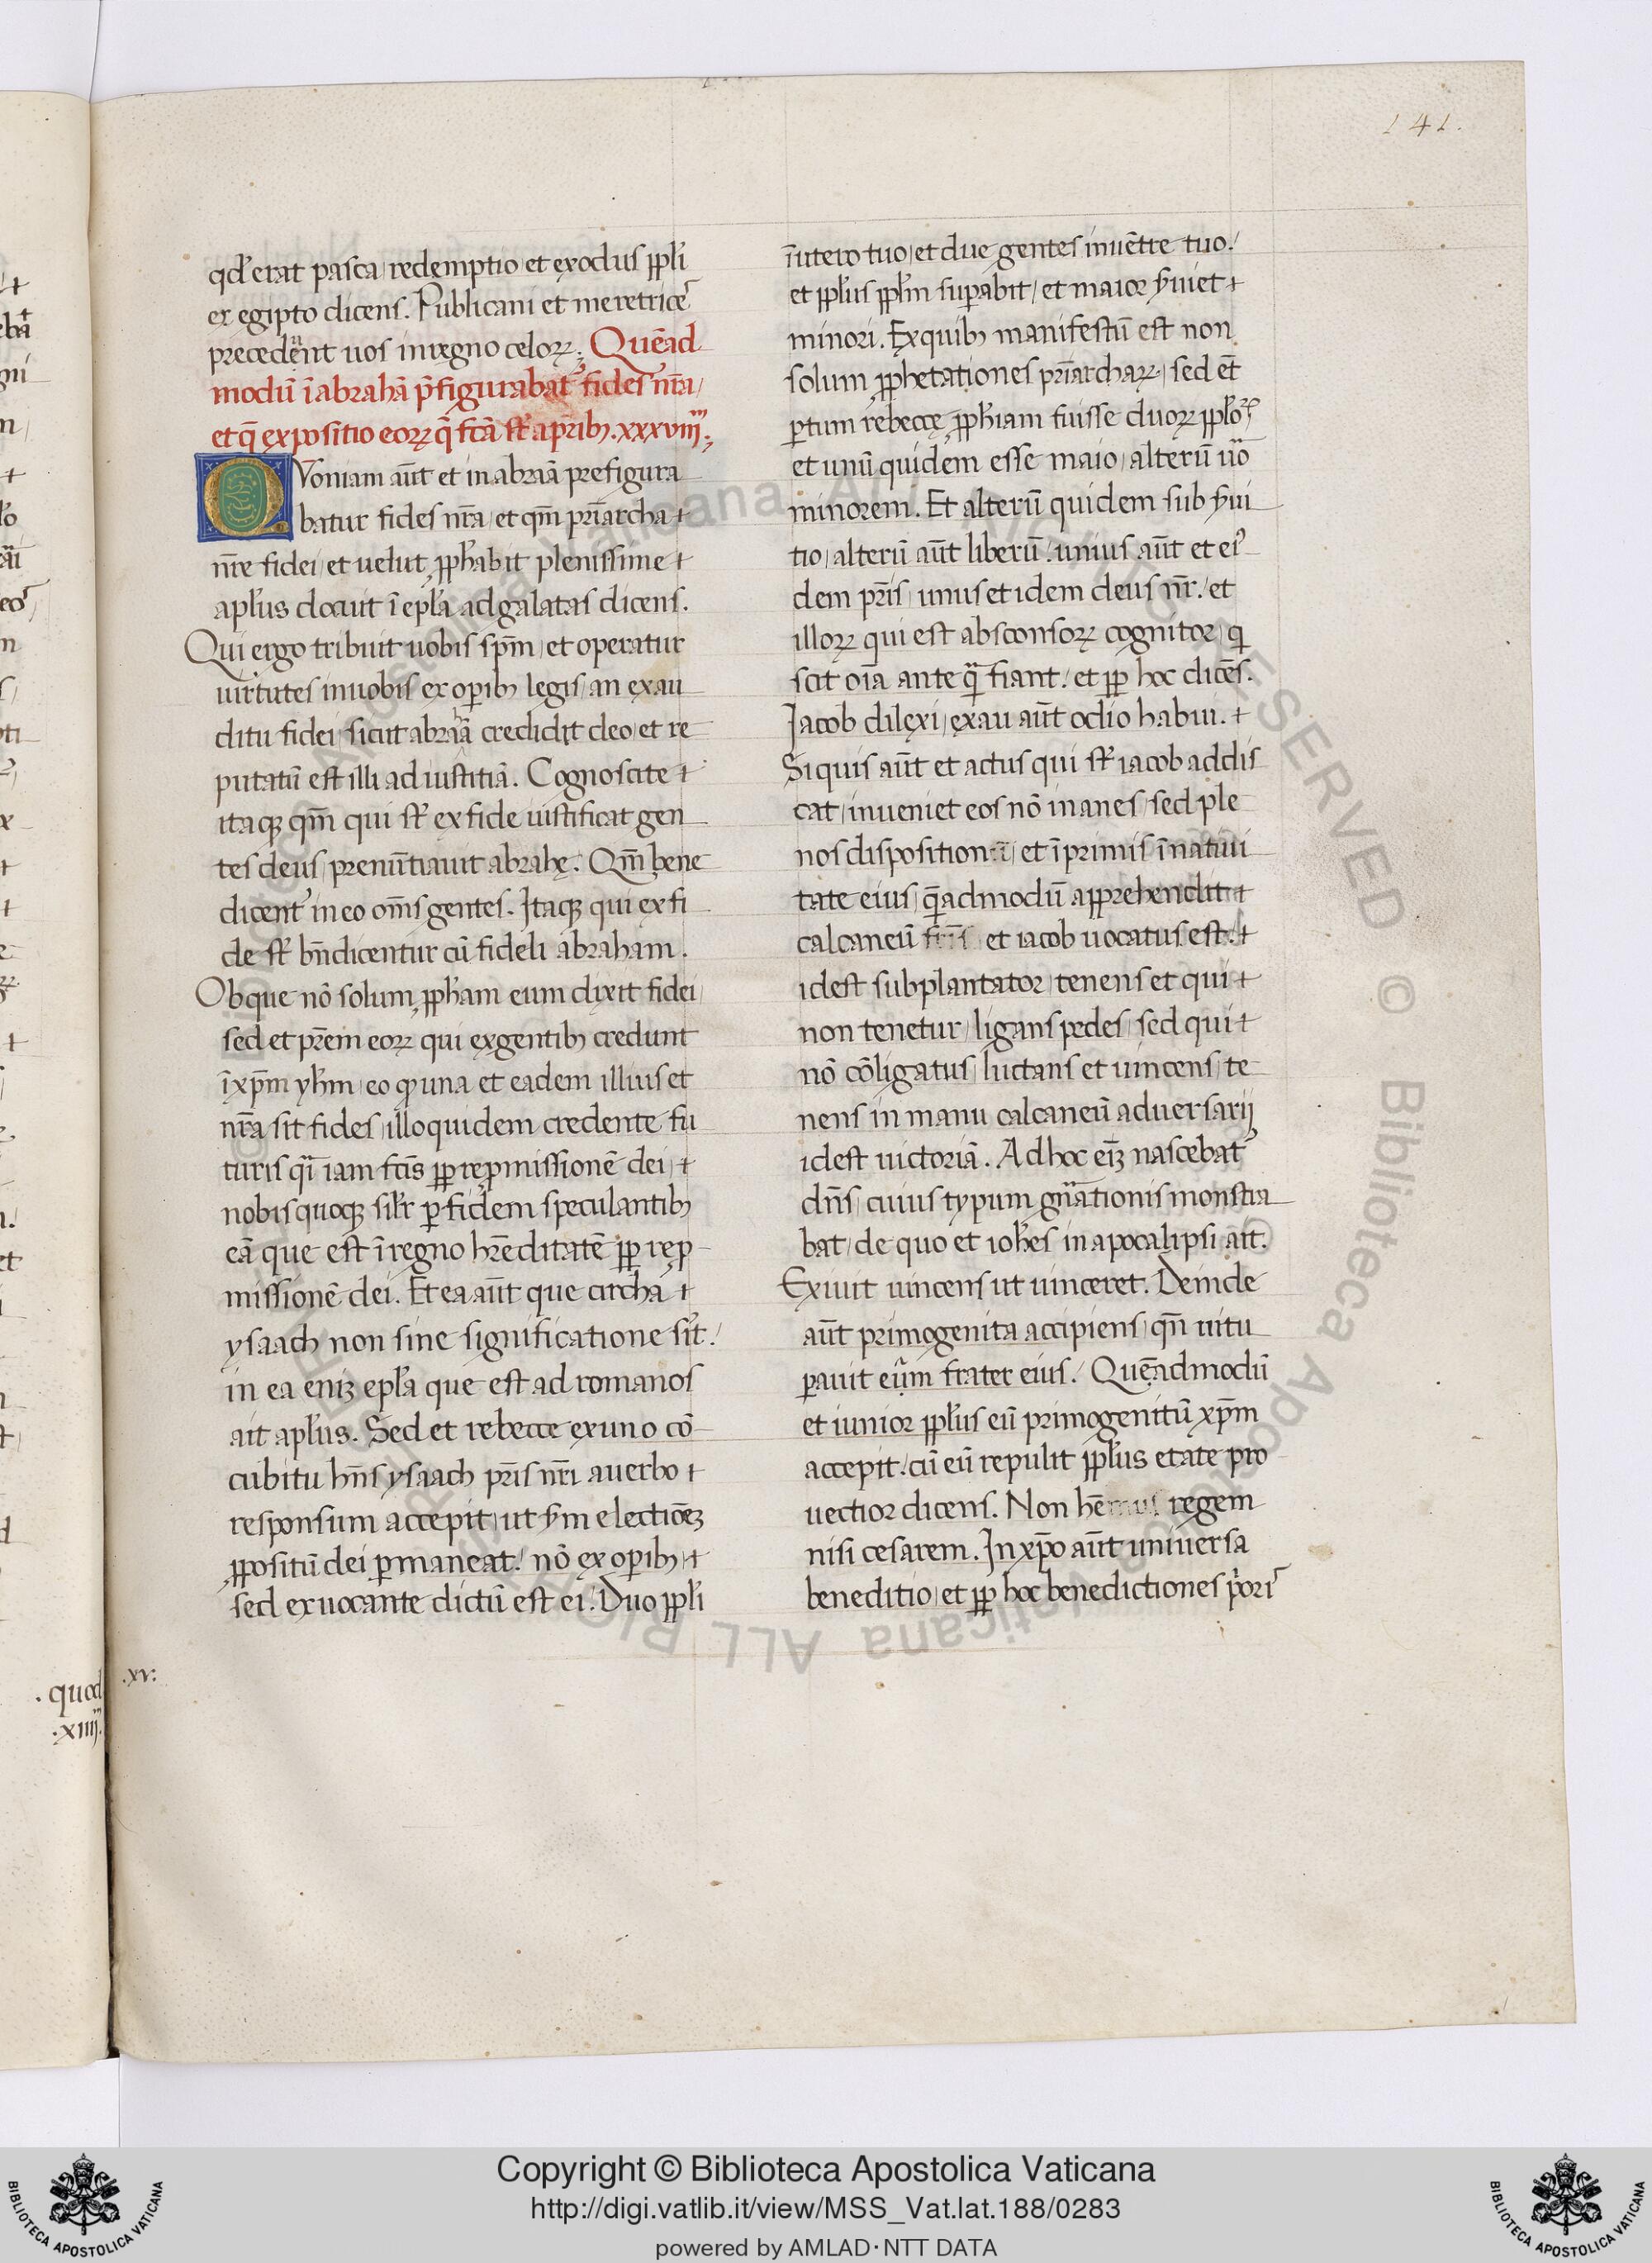 141.
qd̛ erat pasca redemptio et exodus ppl̛i
ex egipto dicens. Publicani et meretrice᷒
precedẽnt uos in regno celoꝝ; Quẽad
modũ ĩ abrahã p̃figurabat᷒ fides nr̃a
et q̃ expositio eoꝝ q̃ fc̃a st̛ a pr̃ib;.xxxviiij.;
QVoniam aũt et in abraã prefigura
batur fides nr̃a et qm̃ pr̃iarcha +
nr̃e fidei et uelut ꝓph̛abit plenissime +
apl̛us docuit ĩ epl̛a ad galatas dicens.
Qui ergo tribuit uobis sp̃m et operatur
uirtutes in uobis ex oꝑib; legis an ex au
ditu fidei sicut abraã credidit deo et re
putatũ est illi ad iustitiã. Cognoscite +
itaqꝫ qm̃ qui st̛ ex fide iustificat gen
tes deus prenũtiauit abrahę. Qm̃ bene
dicent᷒ in eo om̃s gentes. Itaqꝫ qui ex fi
de st̛ bñdicentur cũ fideli abraham.
Ob que nõ solum ꝓph̛am eum dixit fidei
sed et pr̃em eoꝝ qui ex gentib; credunt
ĩ xp̃m yh̛m eo ꝙ una et eadem illius et
nr̃a sit fides illo quidem credente fu
turis q̃i iam fc̃is ꝓp reꝓmissionẽ dei +
nobis quoqꝫ sil̛r ꝑ fidem speculantib;
eã que est ĩ regno hr̃editatẽ ꝓp reꝓ
missionẽ dei. Et ea aũt que circha +
ysaach non sine significatione st̛.
in ea eniꝫ epl̛a que est ad romanos
ait apl̛us. Sed et rebecce ex uno cõ
cubitu hñs ysaach pr̃is nr̃i a uerbo +
responsum accepit ut sm̃ electiõeꝫ
ꝓpositũ dei ꝑmaneat. nõ ex oꝑib; +
sed ex uocante dictũ est ei. Duo ppl̛i
ĩ utero tuo et due gentes in uẽtre tuo.
et ppl̛us ppl̛m suꝑabit et maior s̃uiet +
minori. Ex quib; manifestũ est non
solum ꝓphetationes pr̃iarchaꝝ sed et̃
ꝑtum rebeccę ꝓph̛iam fuisse duoꝝ ppl̛oꝝ
et unũ quidem esse maio alterũ ũo
minorem. Et alterũ quidem sub s̃ui
tio alterũ aũt liberũ. unius aũt et ei᷒
dem pr̃is unus et idem deus nr̃. et
illoꝝ qui est absconsoꝝ cognitor q̃i
scit oĩa ante q̃ fiant. et ꝓp hoc dicẽs.
Iacob dilexi exau aũt odio habui. +
Si quis aũt et actus qui st̛ iacob addis
cat inueniet eos nõ inanes sed ple
nos disposition et ĩ primis ĩ natiui
tate eius q̃admodũ apprehendit +
calcaneũ fr̃is et iacob uocatus est. +
id est subplantator tenens et qui +
non tenetur ligans pedes sed qui +
nõ cõligatus luctans et uincens te
nens in manu calcaneũ aduersarij
id est uictoriã. Ad hoc eiꝫ nascebat᷒
dñs cuius typum gñationis monstra
bat de quo et ioh̛es in apocalipsi ait.
Exiuit uincens ut uinceret. Deinde
aũt primogenita accipiens qñ uitu
ꝑauit eũm frater eius. Quẽadmodũ
et iunior ppl̛us eũ primogenitũ xp̃m
accepit. cũ eũ repulit ppl̛us etate pro
uectior dicens. Non hẽmus regem
nisi cesarem. In xp̃o aũt uniuersa
beneditio et ꝓp hoc benedictiones p̃ori᷒
.xv:
.quod
.xiiij.
Copyright © Biblioteca Apostolica Vaticana
http://digi.vatlib.it/view/MSS_Vat.lat.188/0283
powered by AMLAD·NTT DATA
BIBLIOTECA APOSTOLICA VATICANA
BIBLIOTECA APOSTOLICA VATICANA